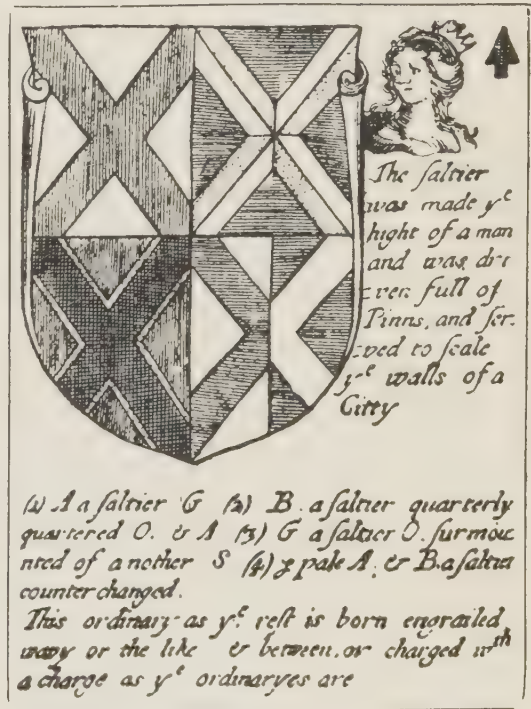 The ſaltier
was made yᵉ
hight of a man
and was dri
ven full of
Pinns, and ſer-
ved to ſcale
yᵉ walls of a
Citty
(1) A a ſaltier G (2) B. a ſaltier quarterly
quartered O. & A (3) G a ſaltier O. ſurmou
nted of another S (4) ꝑ pale A. & B. a ſaltier
counter changed.
This ordinary as yᵉ reſt is born engrailed
wavy or the like & between, or charged wᵗʰ
a charge as yᵉ ordinaryes are